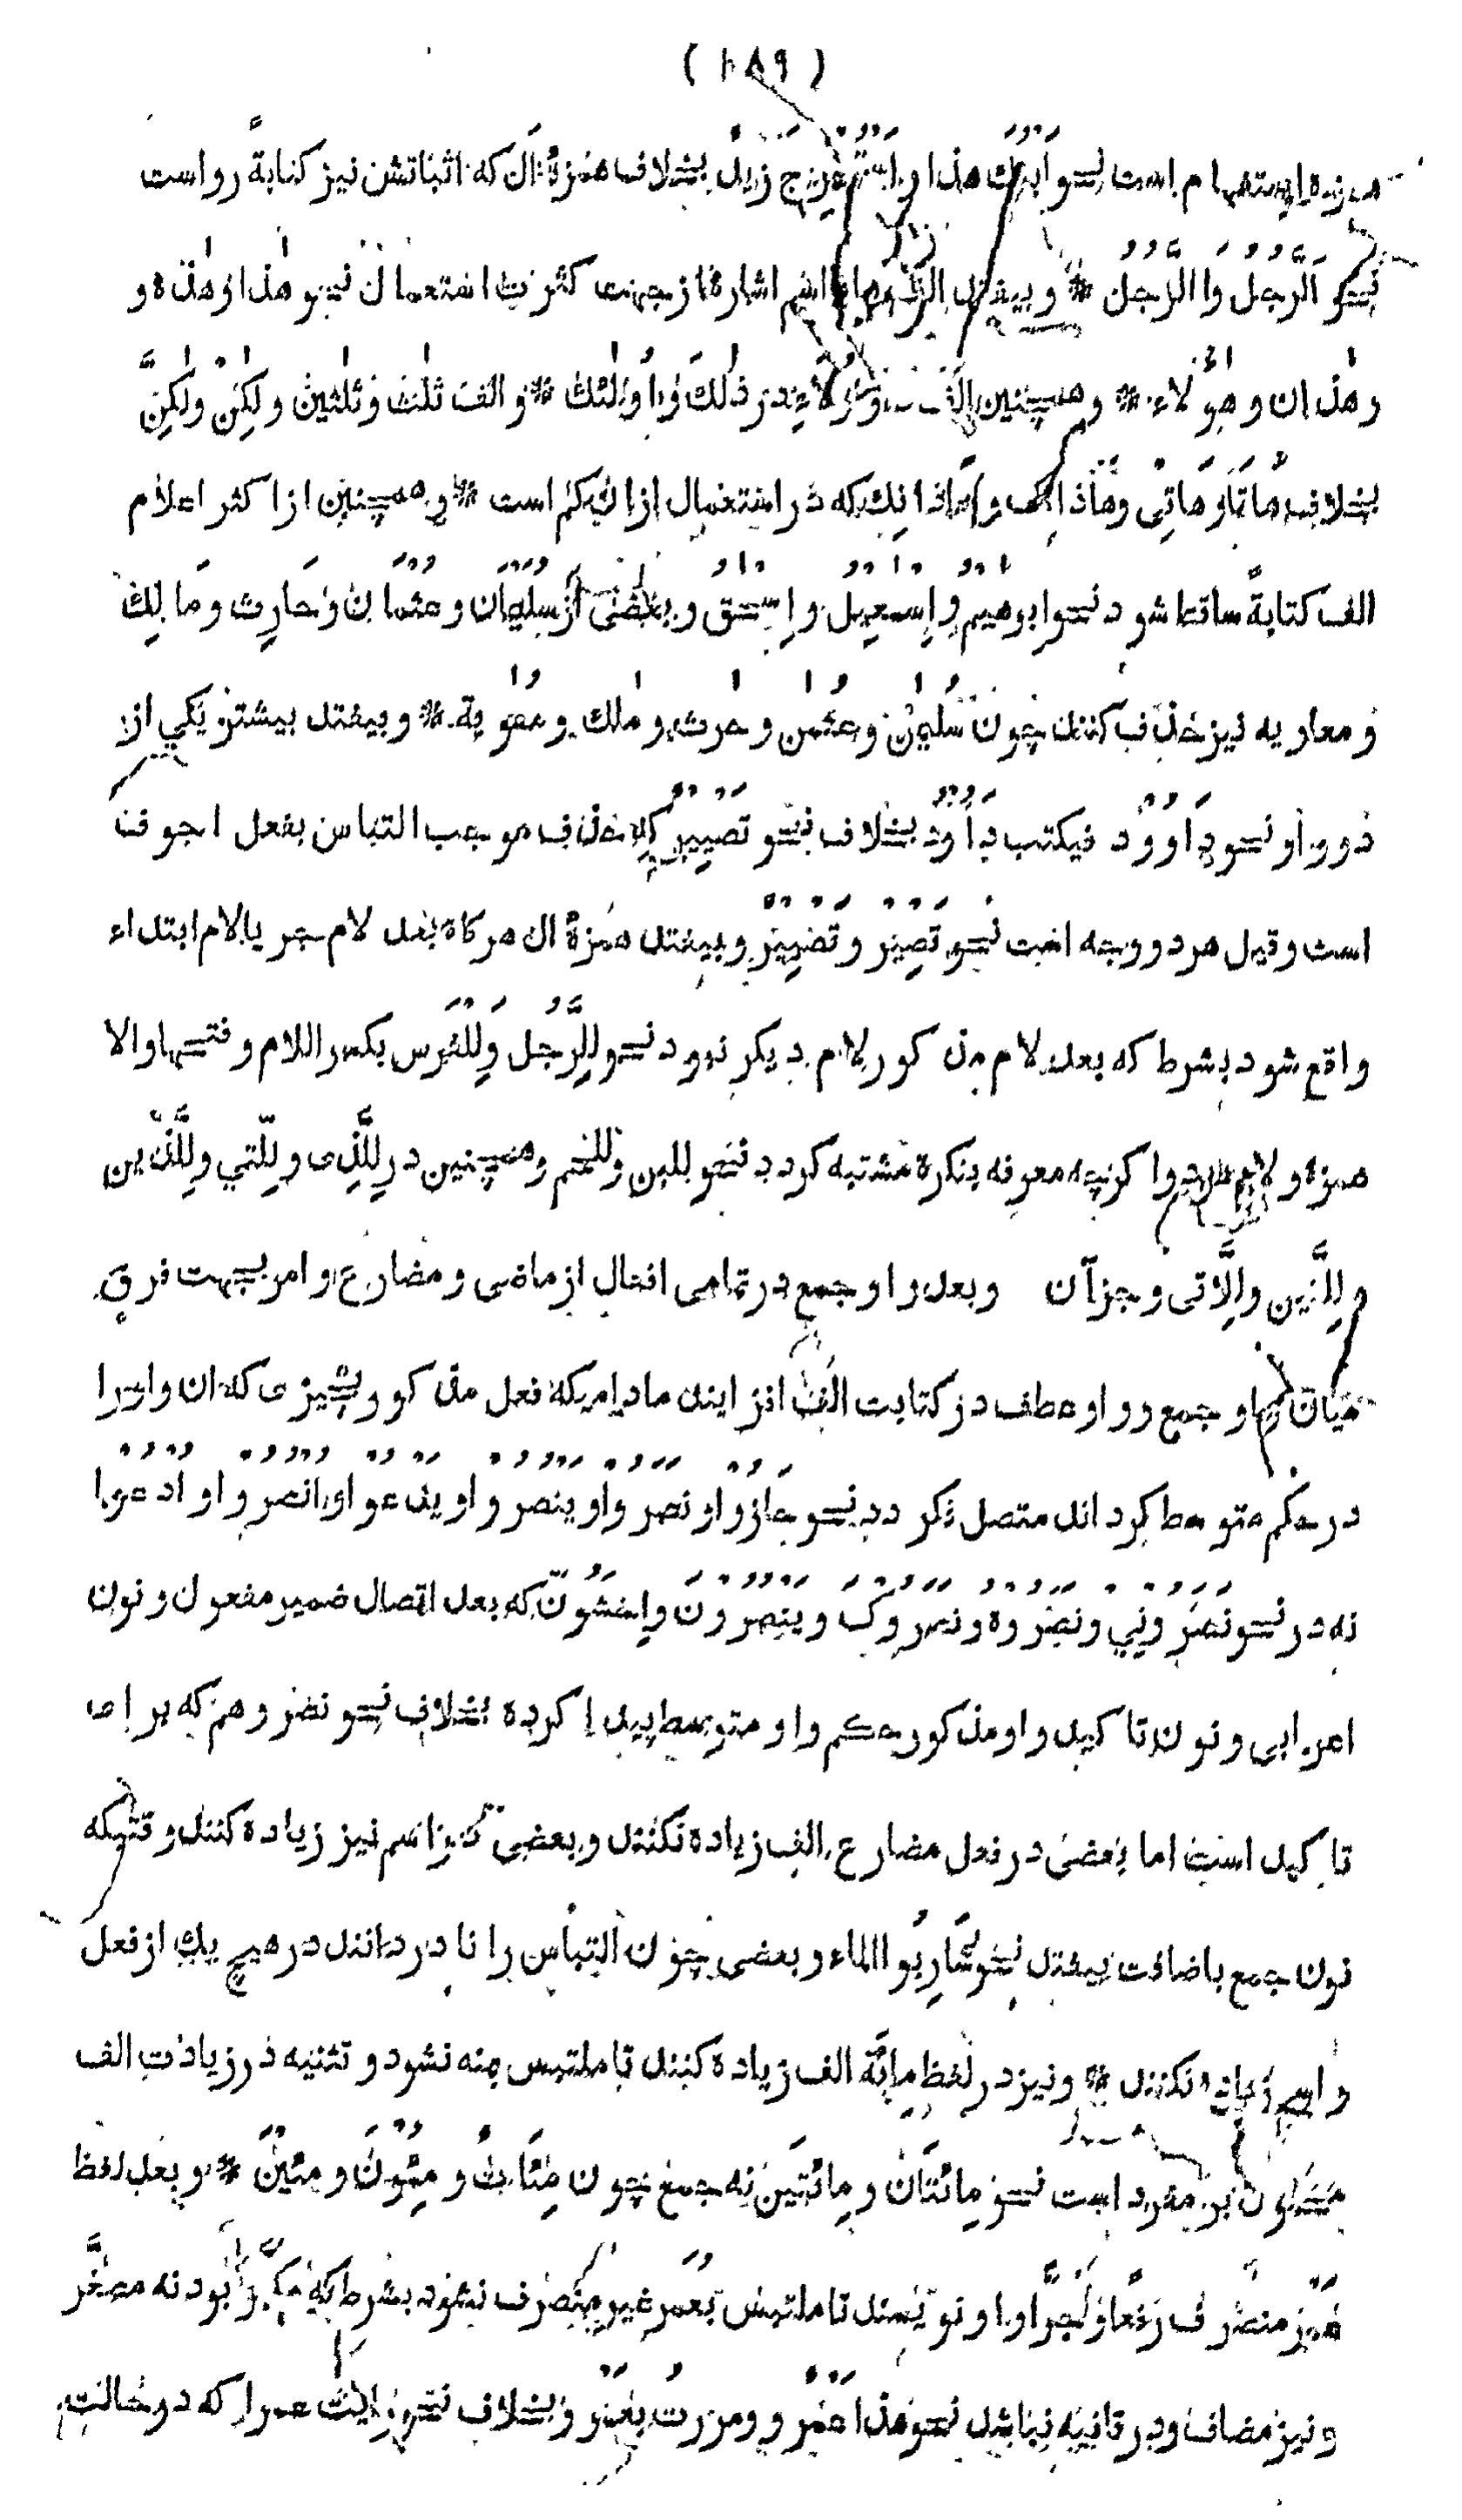 ( ۱۸۹ )
همزه استفهام است نحو اَبِنُكَ هذا و اَسْتَخْرَجَ زيدٌ بخلاف همزهٔ ال كه اثباتش نيز كتابةً رواست
نحو اَلرَّجلُ وَا الرَّجلُ * و بيفتد الف ها اسم اشاره از جهت كثرت استعمال نحو هٰذا و هٰذه و
و هٰذان و هٰؤلاء * و همچنين الف در ذٰلكَ وَ اُولٰئك * و الف ثلٰث و ثلٰثين و لٰكن و لٰكنَّ
بخلاف هاتا و هاتى و هاذاك و هاذانك كه در استعمال ازان كم است * و همچنين از اكثر اعلام
الف كتابةً ساقط شود نحو ابرهيم و اسمعيل و اسحق و بعضى از سليمان و عثمان و حارث و مَالِك
و معاويه نيز حذف كنند چون سُليمٰن و عثمٰن و حرث و ملك و معٰوية * و بيفتد بيشتر يكي از
دو واو نحو داوٗد فيكتب داود بخلاف نحو تصيير كه حذف موجب التباس بفعل اجوف
است و قيل هر دو وجه است نحو تصير و تصيير و بيفتد همزهٔ ال هر كاه بعد لام جر يا لام ابتداء
واقع شود بشرط كه بعد لام مذكور لام ديكر نبود نحو لِلرَّجل وَ لِلفَرس بكسر اللام و فتحها والا
همزه و لام هر دو ا كرچه معرفه بنكره مشتبه كردد نحو للبن و للحم و همچنين در لِلَّذى و لِلّتي و لِلَّذين
و لِلَّذَين و الِلّاتى و جزآن و بعد واو جمع در تمامى افعال از ماضى و مضارع و امر بجهت فرق
ميان او جمع و واو عطف در كتابت الف افزايند ماداميكه فعل مذكور بچيزى كه ان واو را
در حكم متوسط كرداند متصل نكردد نحو جازوا و نصروا و ينصروا و يدعوا و انصروا و ادعوا
نه در نحو نصَروني و نصروه و نصروك و ينصرونَ و اخشوُنّ كه بعد اتصال ضمير مفعول و نون
اعرابى و نون تاكيد واو مذكور حكم واو متوسط پيدا كرده بخلاف نحو نصروهم كه براى
تاكيد است اما بعضى در فعل مضارع الف زياده نكنند و بعضى در اسم نيز زياده كنند وقتيكه
نون جمع باضافت بيفتد نحو شَارِبُوا الماء و بعضى چون التباس را نادر دانند در هيچ يك از فعل
و اسم زياده نكنند * و نيز در لفظ مِائة الف زياده كنند تا ملتبس بمنه نشود و تثنيه در زيادت الف
بر مفرد است نحو مِائتَان و مِائتَين نه جمع چون مِئَاتٌ و مِئُونَ و مِئينَ * و بعد لفظ
عمر منصرف رفعاً و جرًّا واو نويسند تا ملتبس بعُمر غير منصرف نشود بشرطيكه مكبَّر بود نه مصغَّر
و نيز مضاف و در قافيه نباشد نحو هذا عمرو و مررت بعمرو بخلاف نحو رايت عمرا كه در حالت